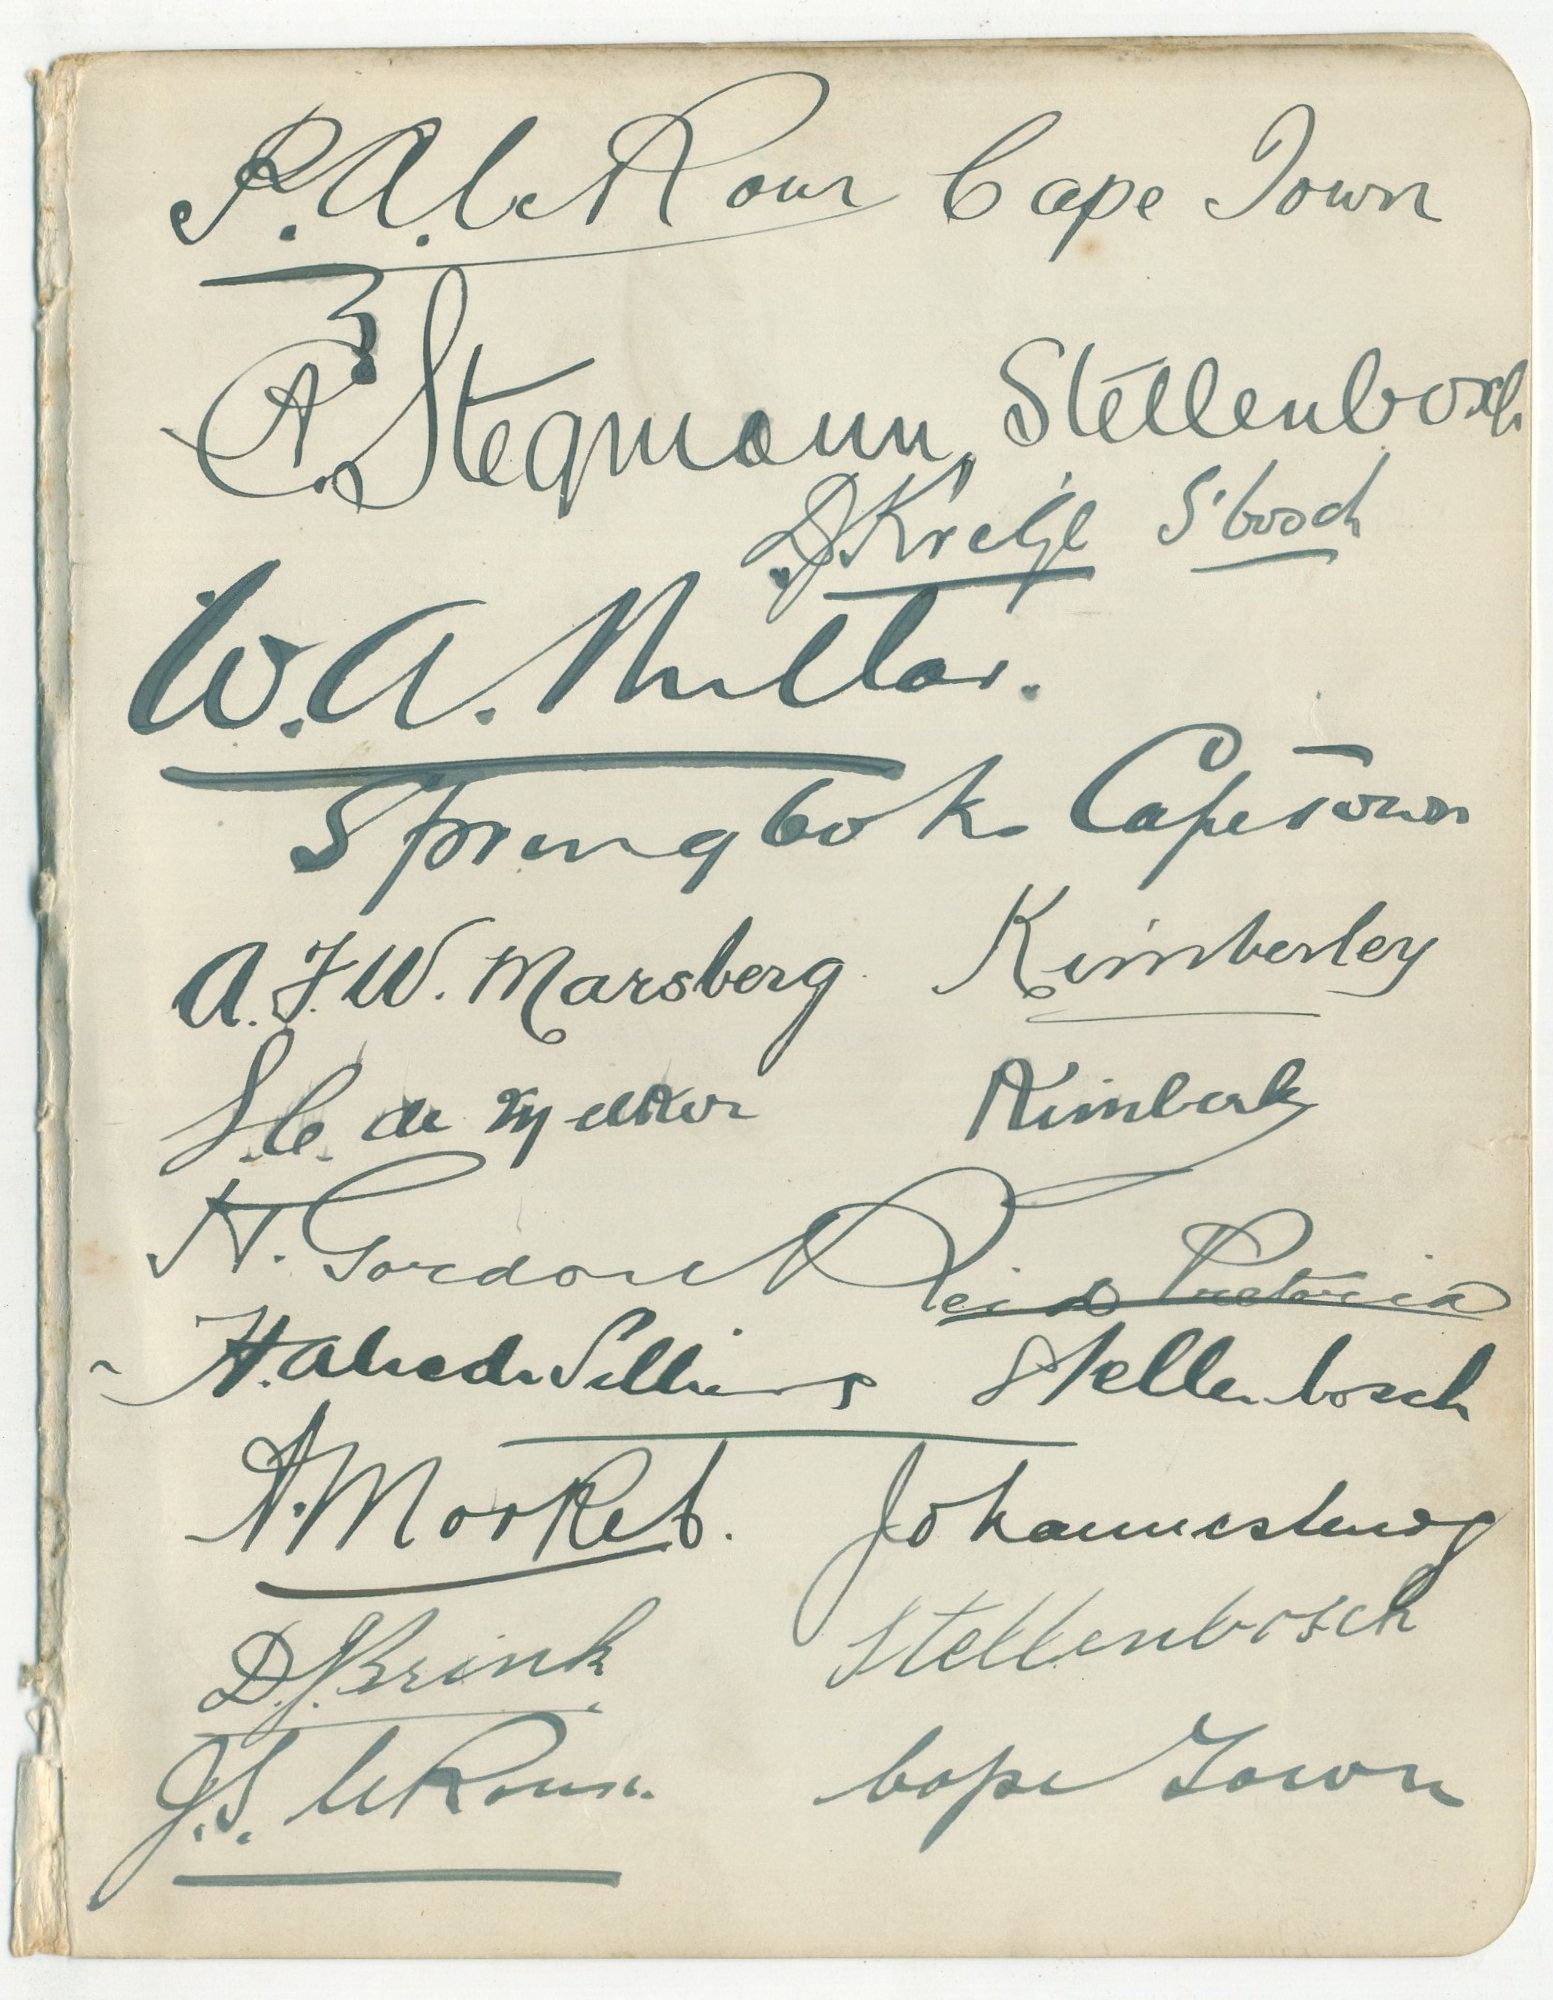 P.A. le Roux Cape Town
A. Stegmann, Stellenbosch
D. Krige S'bosch
W.A. Millar.
Springbok Capetown
A.F.W. Marsberg Kimberley
S.C. de Melker Kimberley
H. Gordon Reid Pretoria
Stellenbosch
A. Morkel. Johannesburg
D.J. Brink Stellenbosch
J.S. le Roux. Cape Town